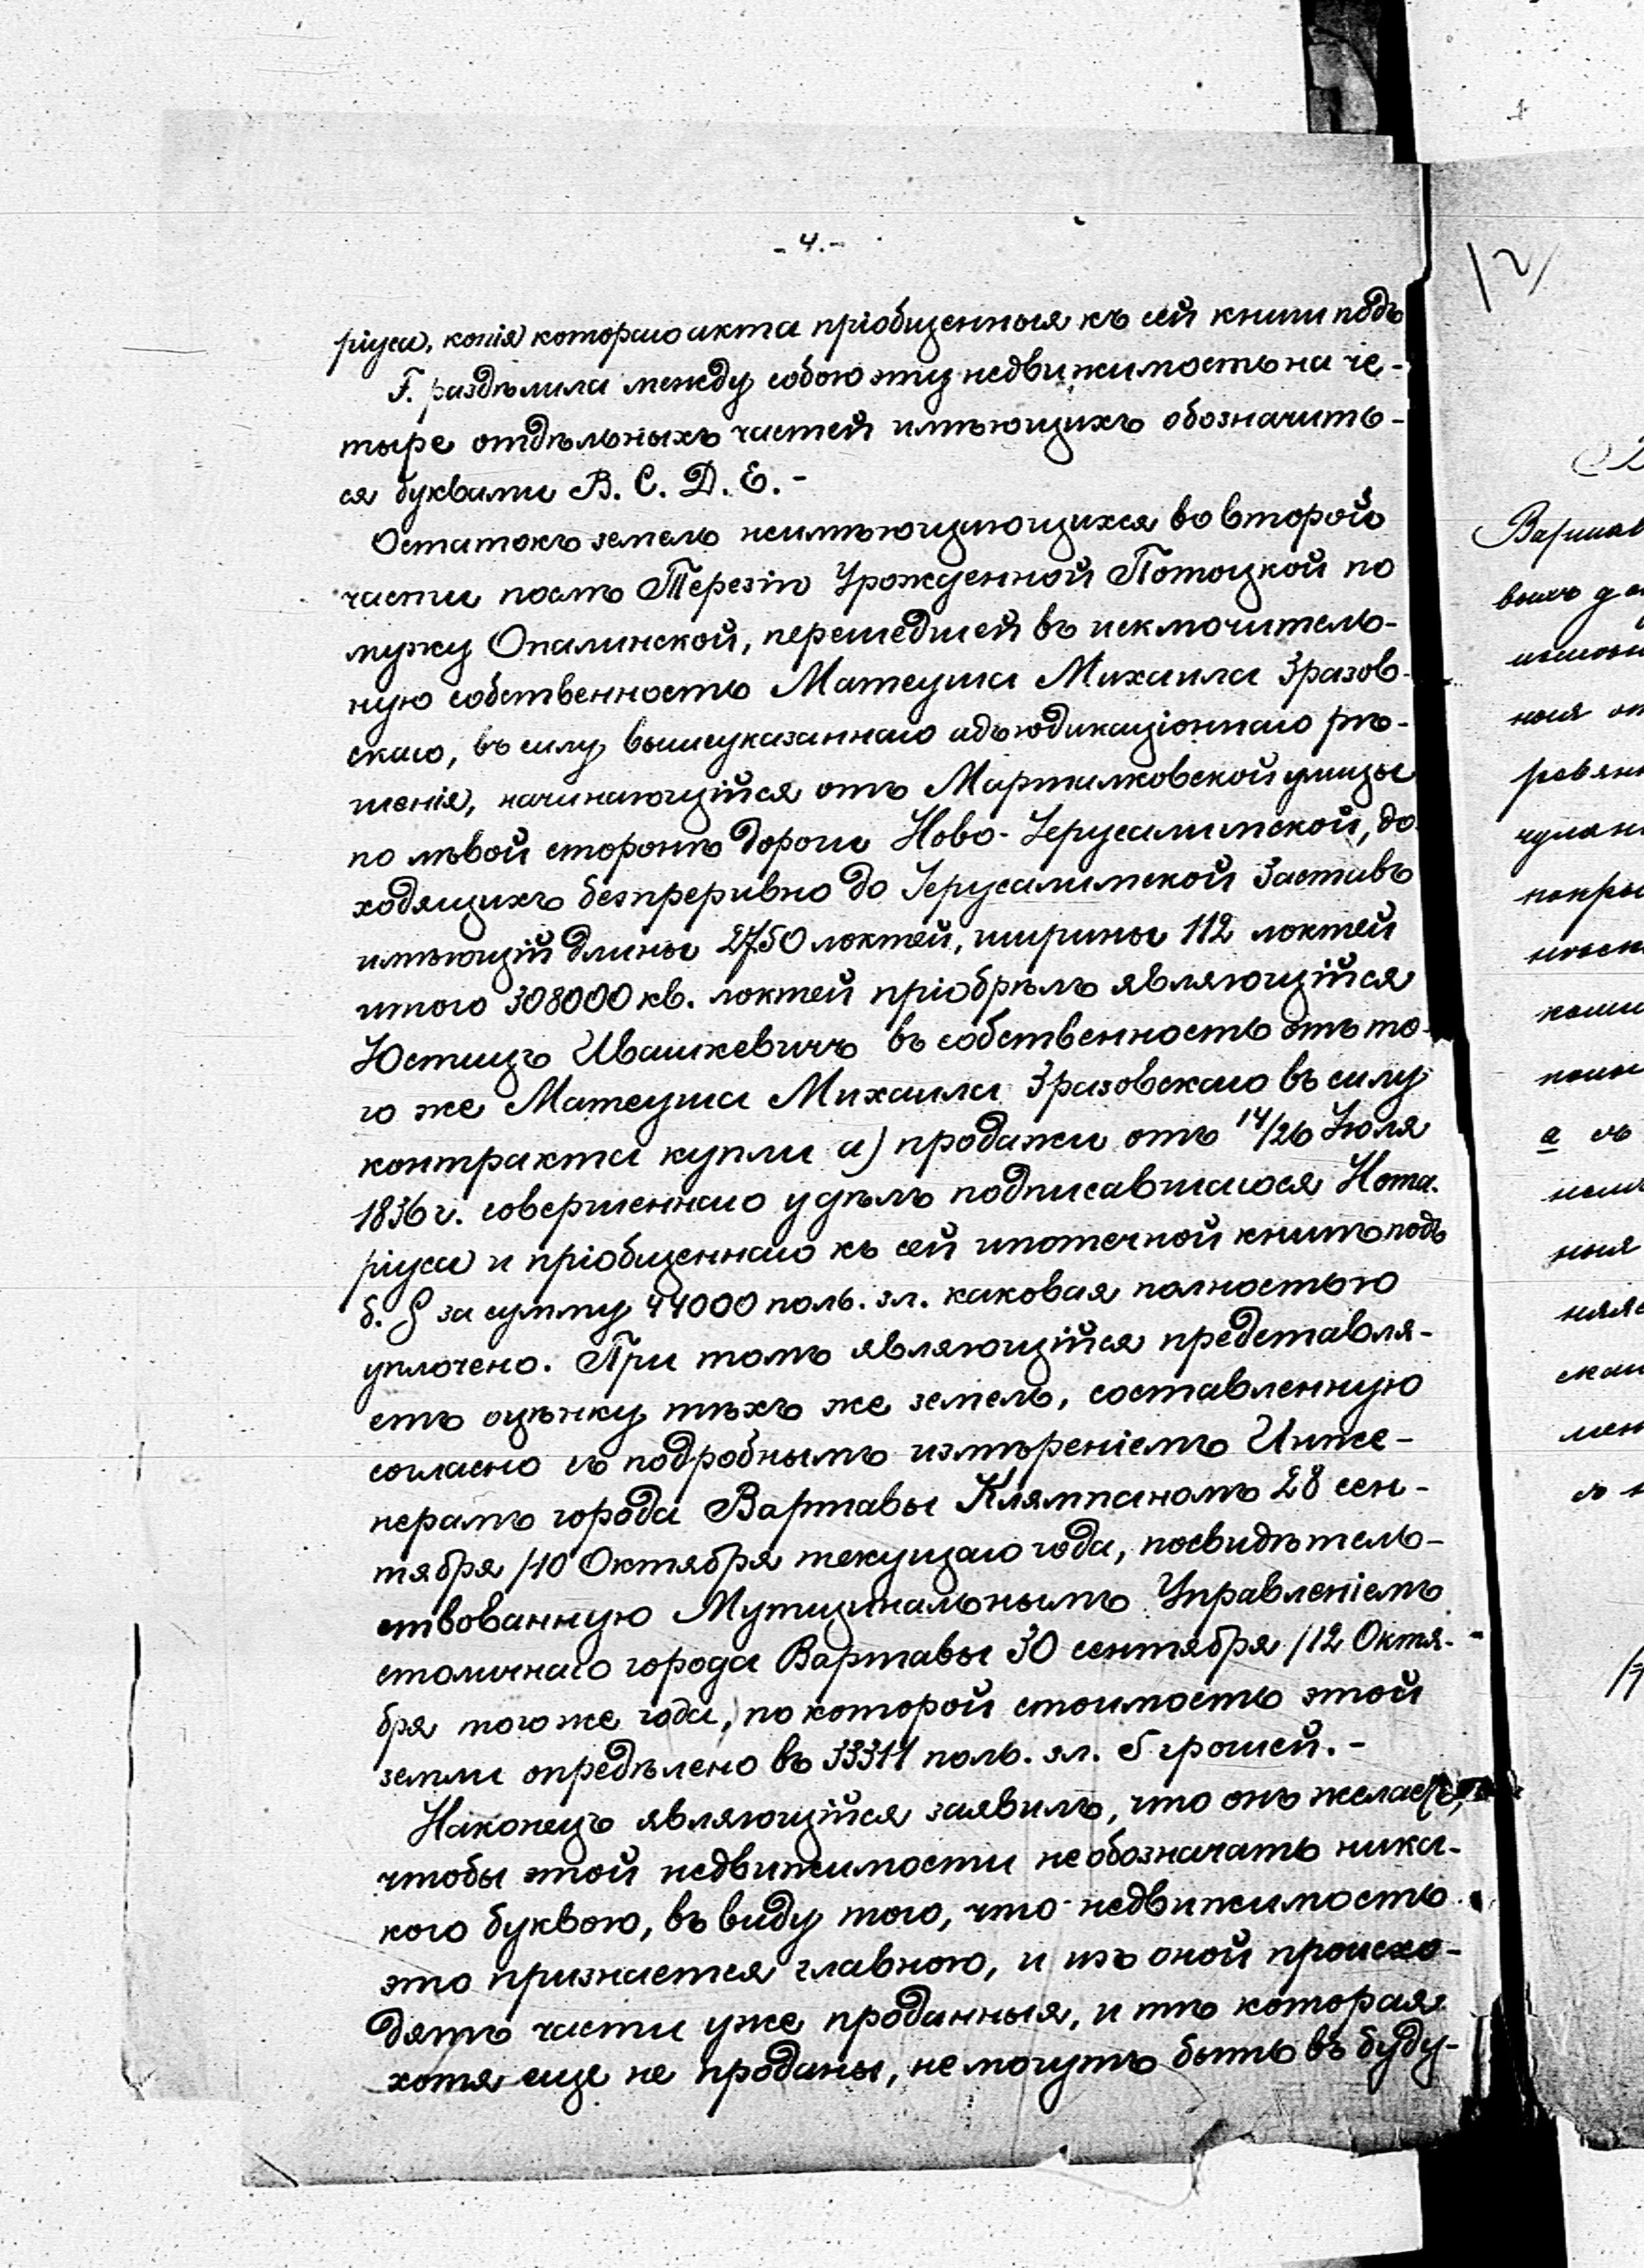 - 4. -
ріуса, копія котораго акта пріобщенныя къ сей книги подъ
F. раздѣлила между собою эту недвижимость на че-
тыре отдѣльныхъ частей имѣющихъ обозначить-
ся буквами B. C. D. E. -
Остатокъ земель неимѣющующихся во второй
части послѣ Терезіи Урожденной Потоцкой по
мужу Опалинской, перешедшей въ исключитель-
ную собственность Матеуша Михаила Зразов-
скаго, въ силу вышеуказаннаго адъюдикаціоннаго рѣ-
шенія, начинающійся отъ Маршалковской улицы
по лѣвой сторонѣ дороги Ново-Іерусалимской, до-
ходящихъ безпреривно до Іерусалимской Заставъ
имѣющій длины 2750 локтей, ширины 112 локтей
итого 308000 кв. локтей пріобрѣлъ являющійся
Юстицъ Ивашкевичъ въ собственность отъ то-
го же Матеуша Михаила Зразовскаго въ силу
контракта купли а) продажи отъ 14/26 Іюля
1836 г. совершеннаго у дѣлъ подписавшагося Нота-
ріуса и пріобщеннаго къ сей ипотечной книгѣ подъ
б. G за сумму 44000 поль. зл. каковая полностью
уплочено. При томъ являющійся представля-
етъ оцѣнку тѣхъ же земель, составленную
согласно съ подробнымъ измѣреніемъ Инже-
нерамъ города Варшавы Клямпаномъ 28 сен-
тября /10 Октября текущаго года, посвидѣтель-
ствованную Мутиципальнымъ Управленіемъ
столичнаго города Варшавы 30 сентября /12 Октя-
бря того же года, по которой стоимость этой
земли опредѣлено въ 33314 поль. зл. 5 грошей. -
Наконецъ являющійся заявилъ, что онъ желаетъ,
чтобы этой недвижимости не обозначать ника-
кого буквою, въ виду того, что недвижимость
это признается главною, и изъ оной происхо-
дятъ части уже проданныя, и тѣ которая
хотя еще не проданы, не могутъ быть въ буду-
12/
Варшав